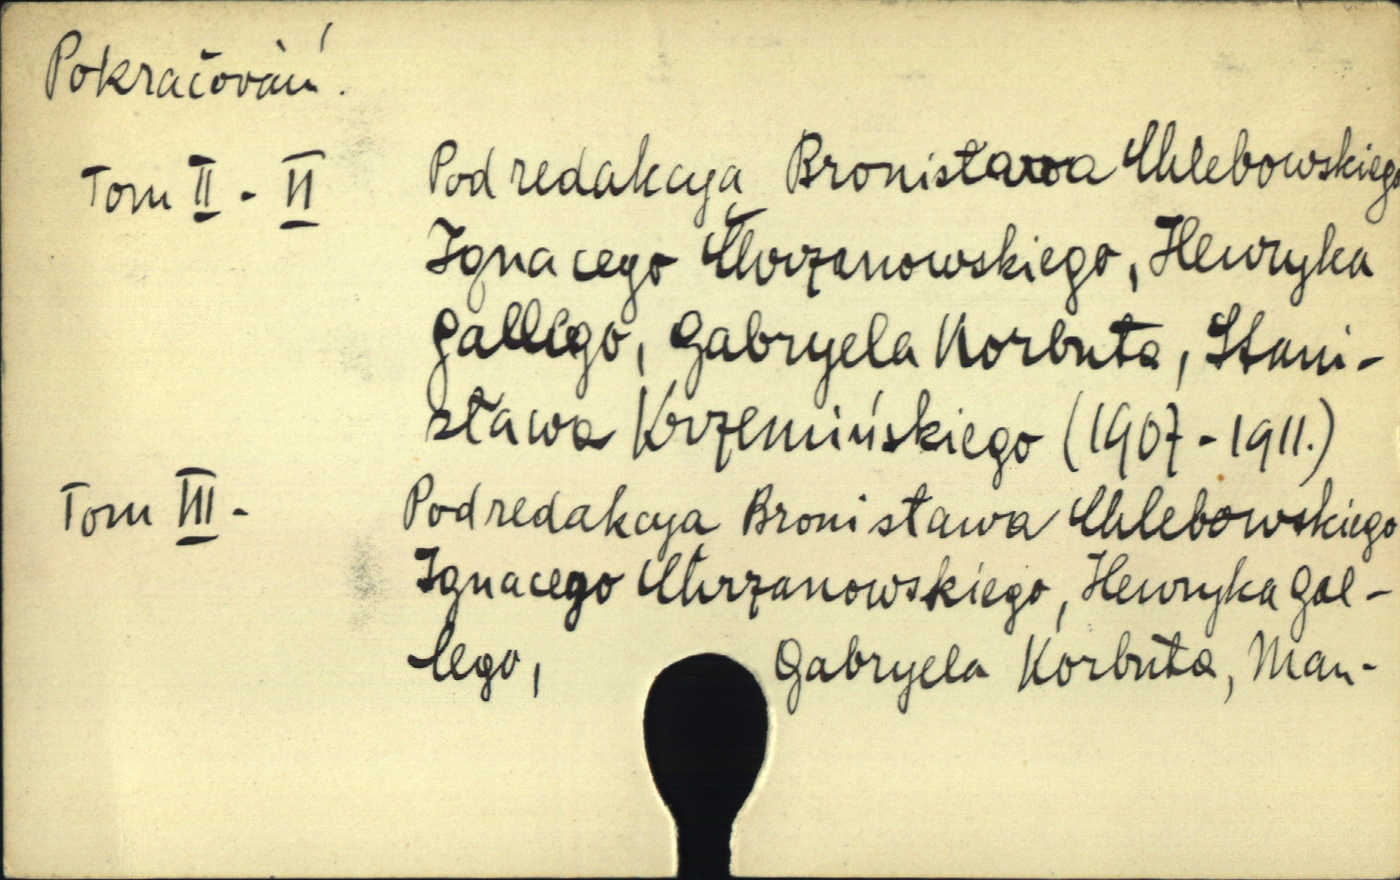 Pokračování.
Tom II - II Pod redakcyą Bronisława Chlebowskiego
Ignacego Chrzanowskiego, Henryka
Gallego, Gabryela Korbuta, Stani-
sława Krzemińskiego (1907-1911.)
Tom III - Pod redakcya Bronisława Chlebowskiego
Ignacego Chrzanowskiego, Henryka Gal-
lego, Gabryela Korbuta, Man-